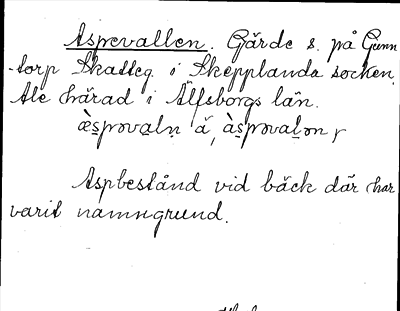 Aspevallen. Gärde s. på Gunn
-torp Skatteg. i Skepplanda socken,
Ale härad i Älfsborgs län.
æ̀spəvaln̥ ä, àspəvalən,
Aspbestånd vid bäck där har
varit namngrund.